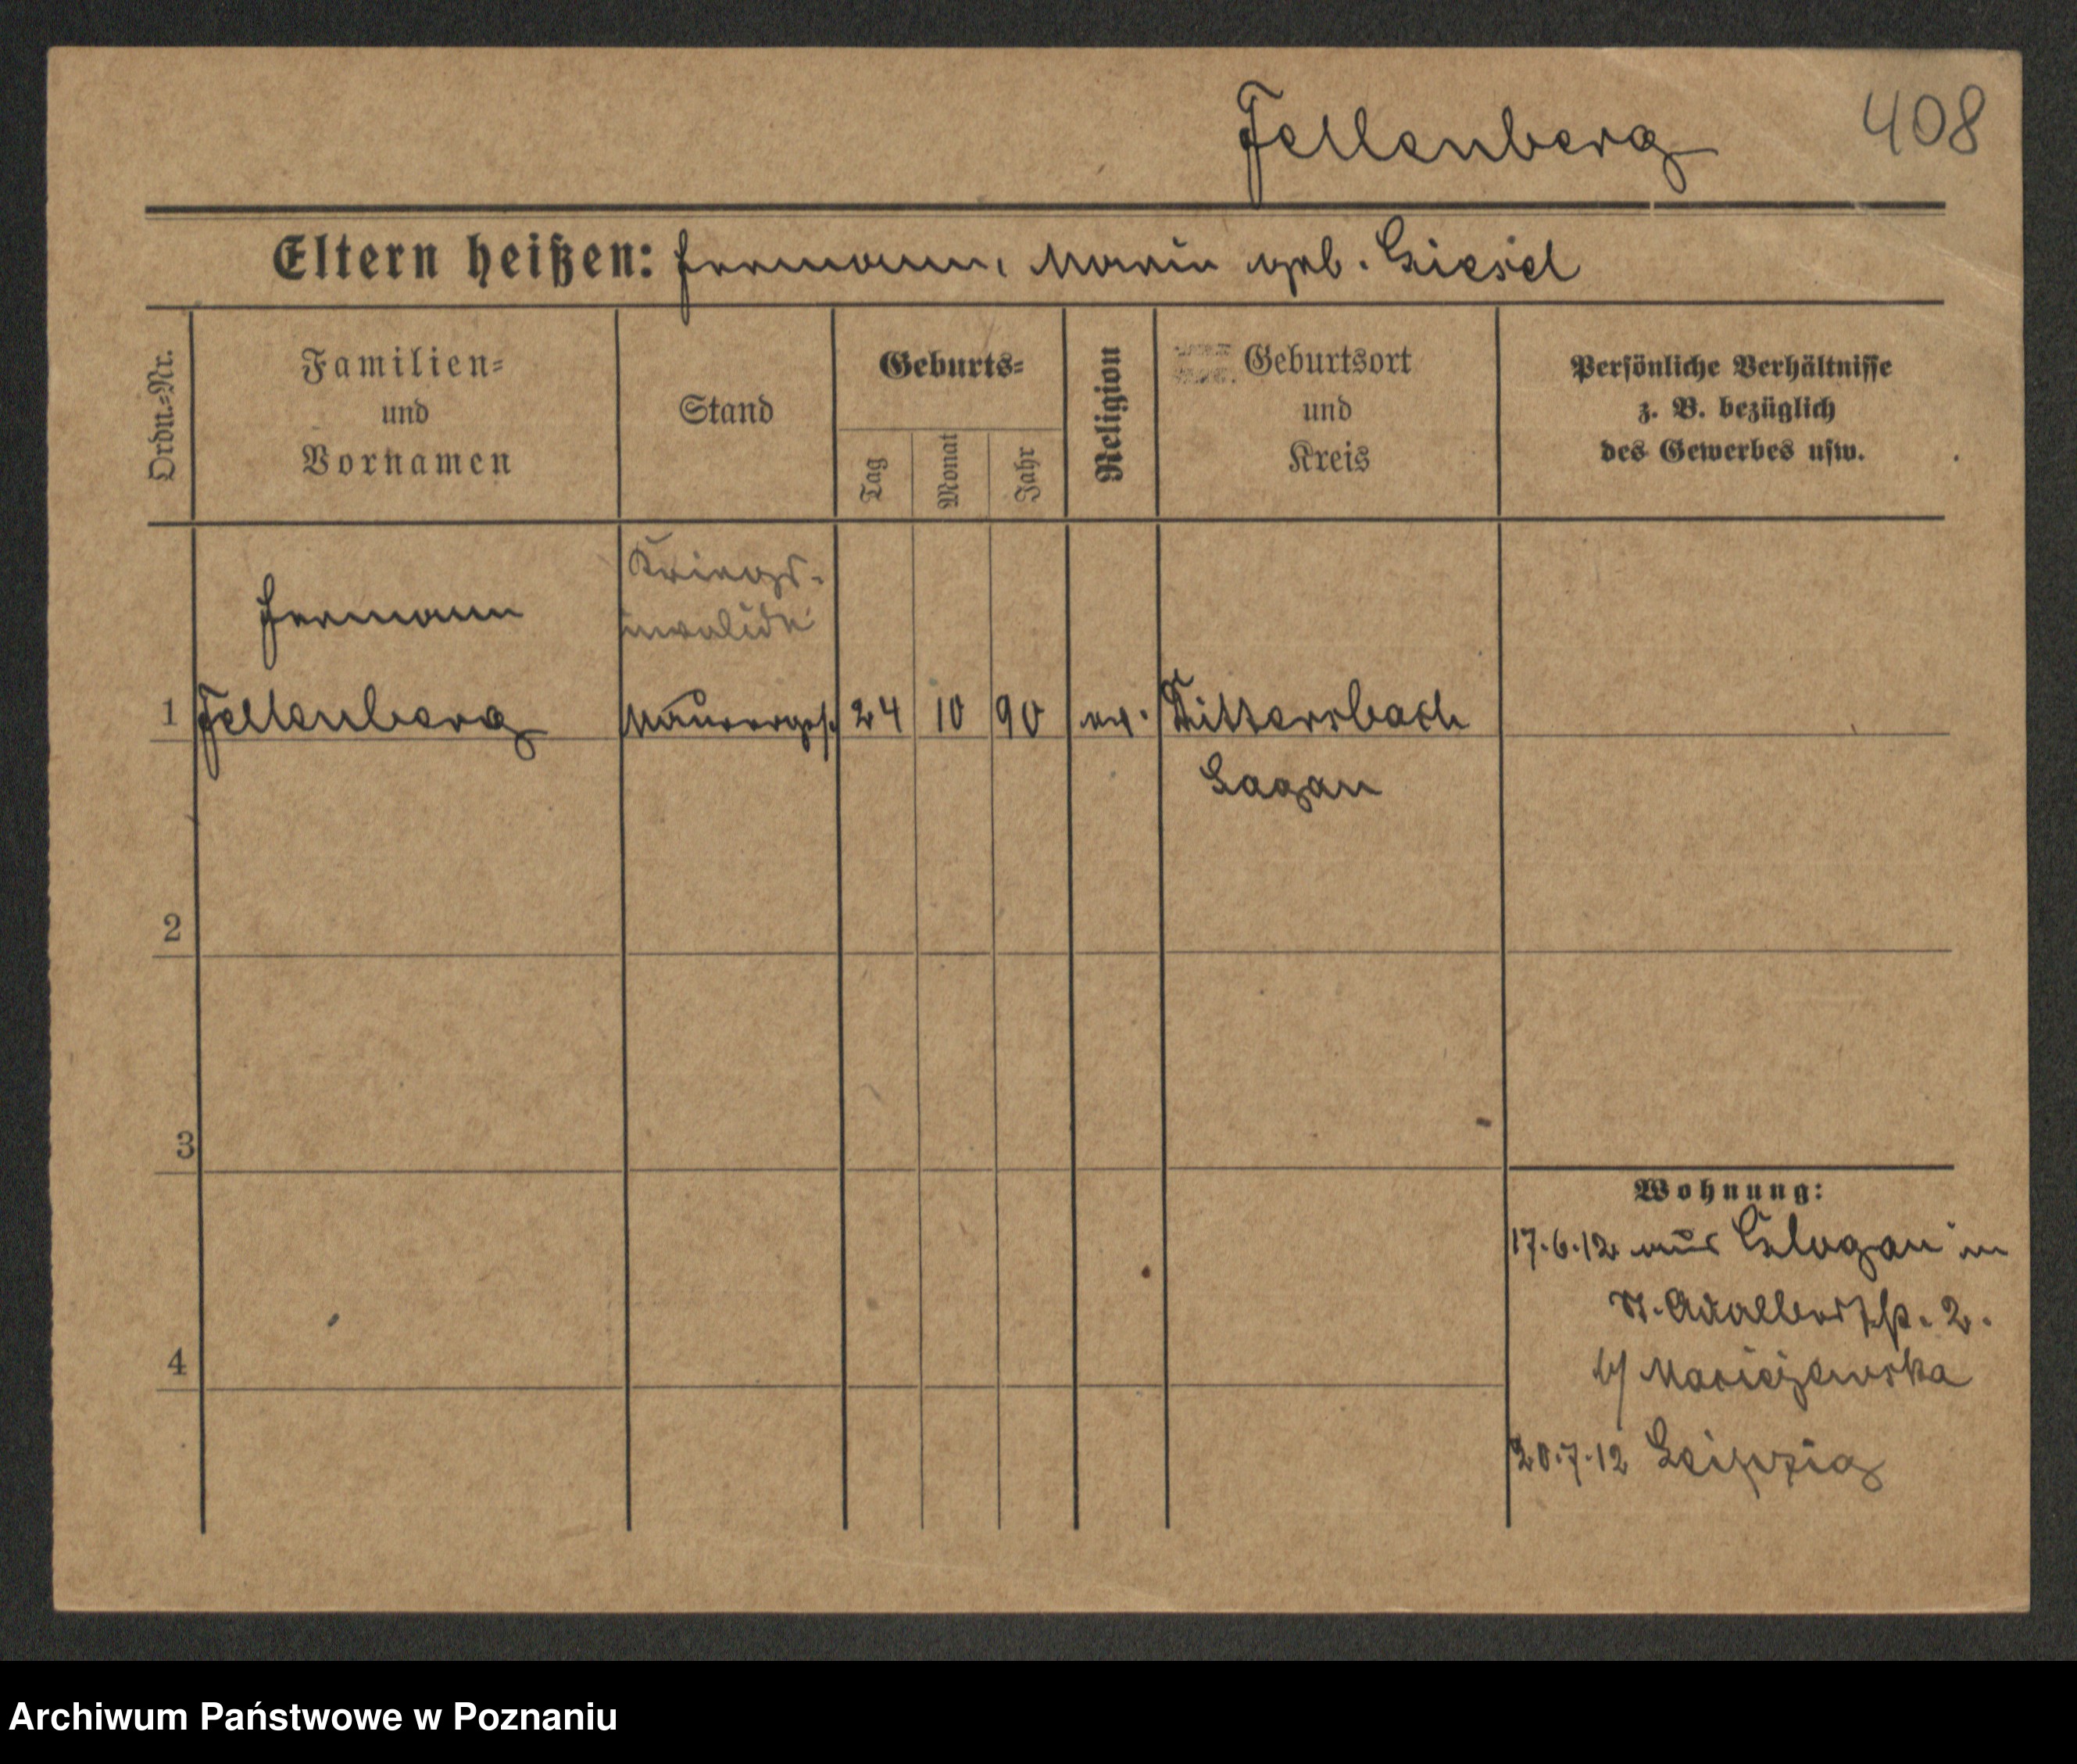 Fellenberg 408
Eltern heißen: Hermann, Maria geb. Giesel
Ordn.-Nr.
Familien-
und
Vornamen
Stand
Geburts-
Tag
Monat
Jahr
Religion
Geburtsort
und
Kreis
Persönliche Verhältnisse
z. B. bezüglich
des Gewerbes usw.
Kriegs-
invalide
Hermann
1 Fellenberg Maurerges. 24 10 90 ev. Dittersbach
Sagan
2
3
4
Wohnung:
17.6.12 aus Glogau in
St. Adalbertstr. 2.
b/ Maciejewska
20.7.12 Leipzig
Archiwum Państwowe w Poznaniu